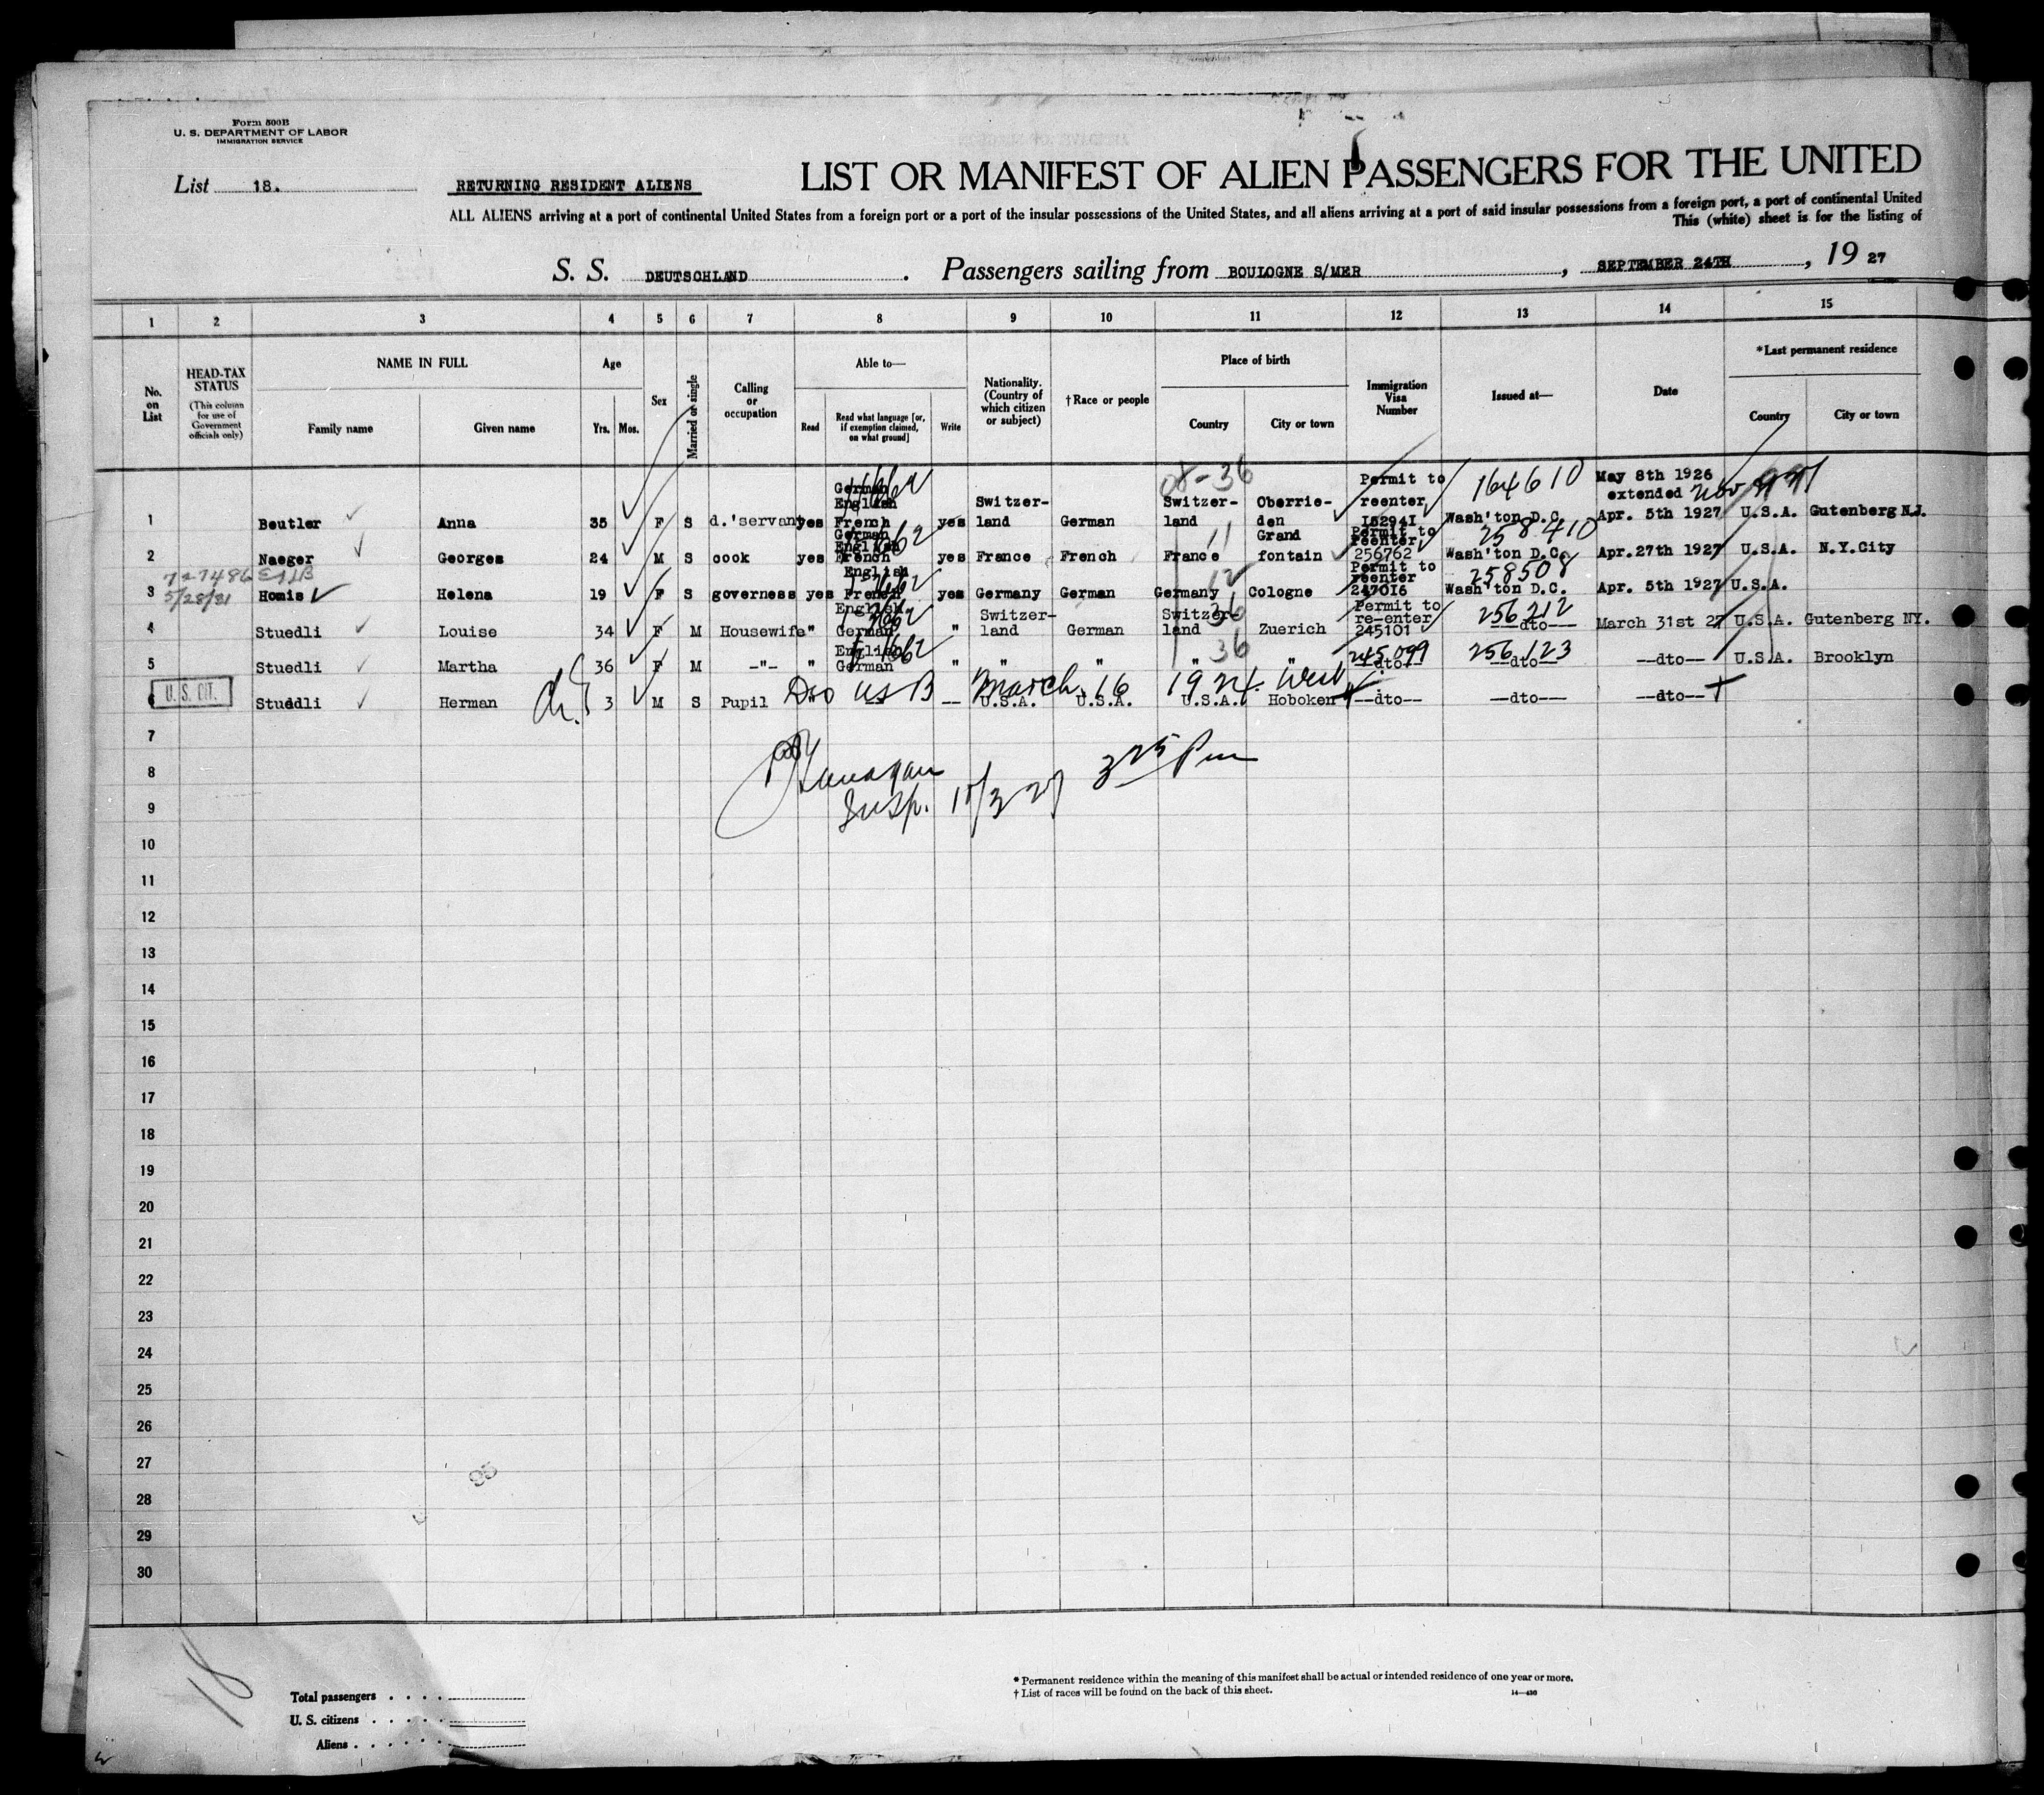 Form 500B
U. S. DEPARTMENT OF LABOR
IMMIGRATION SERVICE
List 18.
RETURNING RESIDENT ALIENS
LIST OR MANIFEST OF ALIEN PASSENGERS FOR THE UNITED
ALL ALIENS arriving at a port of continental United States from a foreign port or a port of the insular possessions of the United States, and all aliens arriving at a port of said insular possessions from a foreign port, a port of continental United
This (white) sheet is for the listing of
S. S. DEUTSCHLAND. Passengers sailing from BOULOGNE S/MER, SEPTEMBER 24TH, 19 27
1 2 3 4 5 6 7 8 9 10 11 12 13 14 15
No. on List
HEAD-TAX STATUS (This column for use of Government officials only)
NAME IN FULL
Family name Given name
Age
Yrs. Mos.
Sex
Married or single
Calling or occupation
Able to—
Read Read what language [or, if exemption claimed, on what ground] Write
Nationality. (Country of which citizen or subject)
†Race or people
Place of birth
Country City or town
Immigration Visa Number
Issued at—
Date
*Last permanent residence
Country City or town
08-36
German English Switzer- Switzer- Oberrie- Permit to reenter 164610 May 8th 1926 extended
1 Beutler Anna 35 F S d.'servant yes French yes land German land den 152941 Wash'ton D.C. Apr. 5th 1927 U.S.A. Gutenberg N.J.
German English 11 Grand Permit to reenter 258410
2 Naeger Georges 24 M S cook yes French yes France French France fontain 256762 Wash'ton D.C. Apr.27th 1927 U.S.A. N.Y.City
727486
English 12 Permit to reenter 258508
3 5/28/31 Homis Helena 19 F S governess yes French yes Germany German Germany Cologne 247016 Wash'ton D.C. Apr. 5th 1927 U.S.A.
English Switzer- Switzer- 36 Permit to re-enter 256212
4 Stuedli Louise 34 F M Housewife " German " land German land Zuerich 245101 --dto-- March 31st 27 U.S.A. Gutenberg NY.
English 36 245099 256123
5 Stuedli Martha 36 F M -"- " German " " " " " --dto-- --dto-- --dto-- U.S.A. Brooklyn
U.S. CIT. USB March 16 1924 West
6 Stuedli Herman 3 M S Pupil " -- -- U.S.A. U.S.A. U.S.A. Hoboken --dto-- --dto-- --dto--
7
8
Insp. 3 25 Pm
9
10
11
12
13
14
15
16
17
18
19
20
21
22
23
24
25
26
27
95
28
29
30
18
Total passengers
U. S. citizens
Aliens
* Permanent residence within the meaning of this manifest shall be actual or intended residence of one year or more.
† List of races will be found on the back of this sheet.
14—430